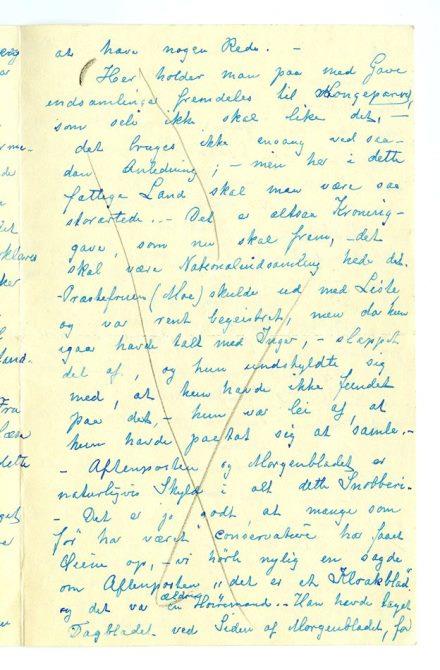 at have nogen Rede. –
Her holder man paa med Gave-
indsamlinger fremdeles til Kongeparret,
som selv ikke skal like det, –
det bruges ikke engang ved saa-
dan Anledning; – men her i dette
fattige Land skal man være saa
storartede. – Det er altsaa Kronings-
gave, som nu skal frem, – det
skal være Nationalindsamling heder det.
Præstefruen (Moe) skulde ud med Liste,
og var rent begeistret, men da hun
igaar havde talt med Inger, – slappet
det af, og hun undskyldte sig
med, at hun havde ikke fundet
paa det, – hun var lei af, at
hun havde paatat sig at samle. –
– Aftenposten og Morgenbladet er
naturligvis Skyld i alt dette Snobberi. –
– Det er jo godt at mange som
før har været conservative har faaet
Øiene op, – vi hørte nylig en sagde
om Aftenposten "det er et Kloakblad"
og det var en ældre Høiremand. – Han havde
Dagbladet ved Siden af Morgenbladet, for